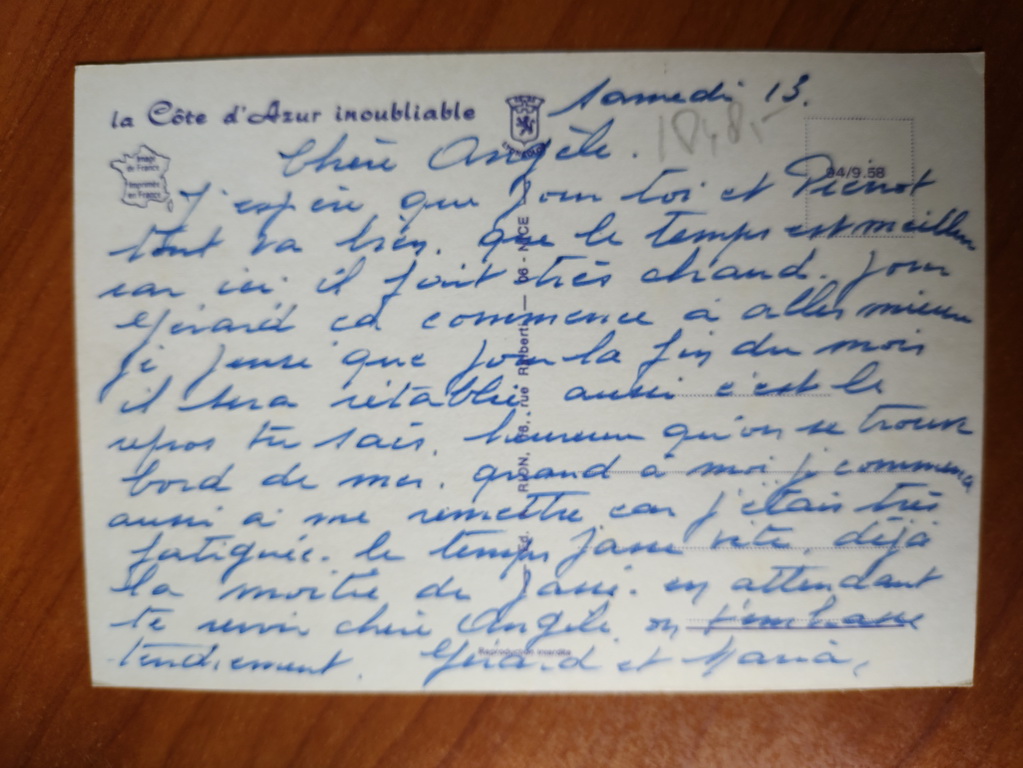 la Côte d'Azur inoubliable
Samedi 13.
18,8,-
Chère Angèle.
Image
de France
Imprimée
en France
94/9.58
J'espère que pour toi et Pierrot
tout va bien. que le temps est meilleur
car ici il fait très chaud. pour
Gérard ca commence à aller mieux
je pense que pour la fin du mois
il sera rétabli aussi c'est le
repos tu sais. heureux qu'on se trouve
bord de mer. quand à moi je commence
aussi à me remettre car j'étais très
fatiguée. le temps passe vite. déjà
la moitié de passé. en attendant
te revoir chère Angèle on t'embrasse
tendrement. Gérard et Maria.
Ed. RION, rue Rossetti — 06 - NICE
Reproduction interdite